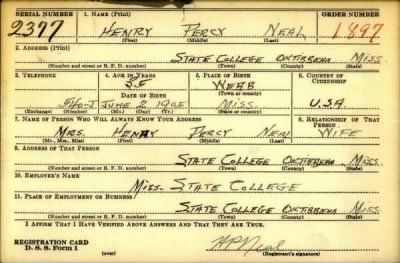 SERIAL NUMBER 1. NAME (Print) ORDER NUMBER
2377 HENRY PERCY NEAL 1897
(First) (Middle) (Last)
2. ADDRESS (Print)
STATE COLLEGE OKTIBBEHA MISS.
(Number and street or R. F. D. number) (Town) (County) (State)
3. TELEPHONE 4. AGE IN YEARS 5. PLACE OF BIRTH 6. COUNTRY OF CITIZENSHIP
35 WEBB
DATE OF BIRTH (Town or county)
JUNE 2 1905 MISS. U.S.A.
(Exchange) (Number) (Mo.) (Day) (Yr.) (State or country)
7. NAME OF PERSON WHO WILL ALWAYS KNOW YOUR ADDRESS 8. RELATIONSHIP OF THAT PERSON
MRS. HENRY PERCY NEAL WIFE
(Mr., Mrs., Miss) (First) (Middle) (Last)
9. ADDRESS OF THAT PERSON
STATE COLLEGE OKTIBBEHA MISS.
(Number and street or R. F. D. number) (Town) (County) (State)
10. EMPLOYER'S NAME
MISS. STATE COLLEGE
11. PLACE OF EMPLOYMENT OR BUSINESS
STATE COLLEGE OKTIBBEHA MISS.
(Number and street or R. F. D. number) (Town) (County) (State)
I AFFIRM THAT I HAVE VERIFIED ABOVE ANSWERS AND THAT THEY ARE TRUE.
REGISTRATION CARD
D. S. S. Form 1 (over) HPNeal
(Registrant's signature)